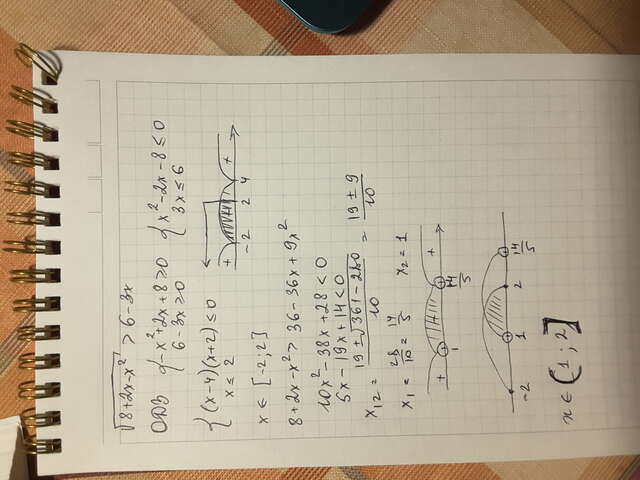 √8+2x-x² > 6-3x
ОДЗ { -x²+2x+8≥0 { x²-2x-8≤0
6-3x≥0 3x≤6
{ (x-4)(x+2)≤0
x≤2
+ + -2 2 4
x∈[-2;2]
8+2x-x²>36-36x+9x²
10x²-38x+28<0
5x-19x+14<0
x₁₂ = 19±√361-280 / 10 = 19±9 / 10
x₁ = 28/10 = 14/5 x₂=1
+ + 1 14/5
-2 1 2 14/5
x∈(1;2]